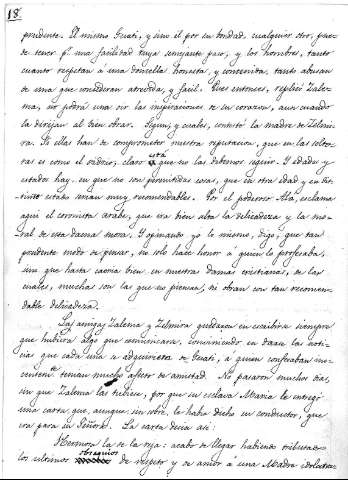 18.
prudente. El mismo Guati, y sino él por su bondad, cualquier otro, pue-
de tener pr. una facilidad tuya semejante paso, y los hombres, tanto
cuanto respetan á una doncella honesta, y contenida, tanto abusan
de una que consideran atrevida, y facil. Pues entonces, replicó Zale-
ma, no podrá una oir las inspiraciones de su corazon, aun cuando
la dirijan al bien obrar. Segun, y cuales, contestó la madre de Zelmi-
ra. Si ellas han de comprometer nuestra reputacion, que en las solte-
ras es como el vidrio, claro está que no las debemos seguir. Y edades y
estados hay en que no son permitidas cosas, que en otra edad y en dis-
tinto estado serian muy recomendables. Por el poderoso Ala, esclama
aqui el cronista arabe, que era bien alta la delicadeza y la mo-
ral de esta dama mora. Y opinando yo lo mismo, digo, que tan
prudente modo de pensar, no solo hace honor á quien lo profesaba,
sino que hasta caeria bien en nuestras damas cristianas, de las
cuales, muchas son las que no piensan, ni obran con tan recomen-
dable delicadeza.
Las amigas Zalema y Zelmira quedaron en escribirse siempre
que hubiera algo que comunicarse, conviniendo en darse las noti-
cias que cada una adquiriera de Guati, á quien confesaban ino-
centemte. tenian mucho afecto de amistad. No pasaron muchos dias,
sin que Zalema las tubiese, por que su esclava Maria le entregó
una carta que, aunque sin sobre, la habia dicho su conductor, que
era para su Señora. La carta decia así:
Hermosa la de la reja: acabo de llegar habiendo tributado
los ultimos obsequios de respeto y de amor á una Madre idolatra-